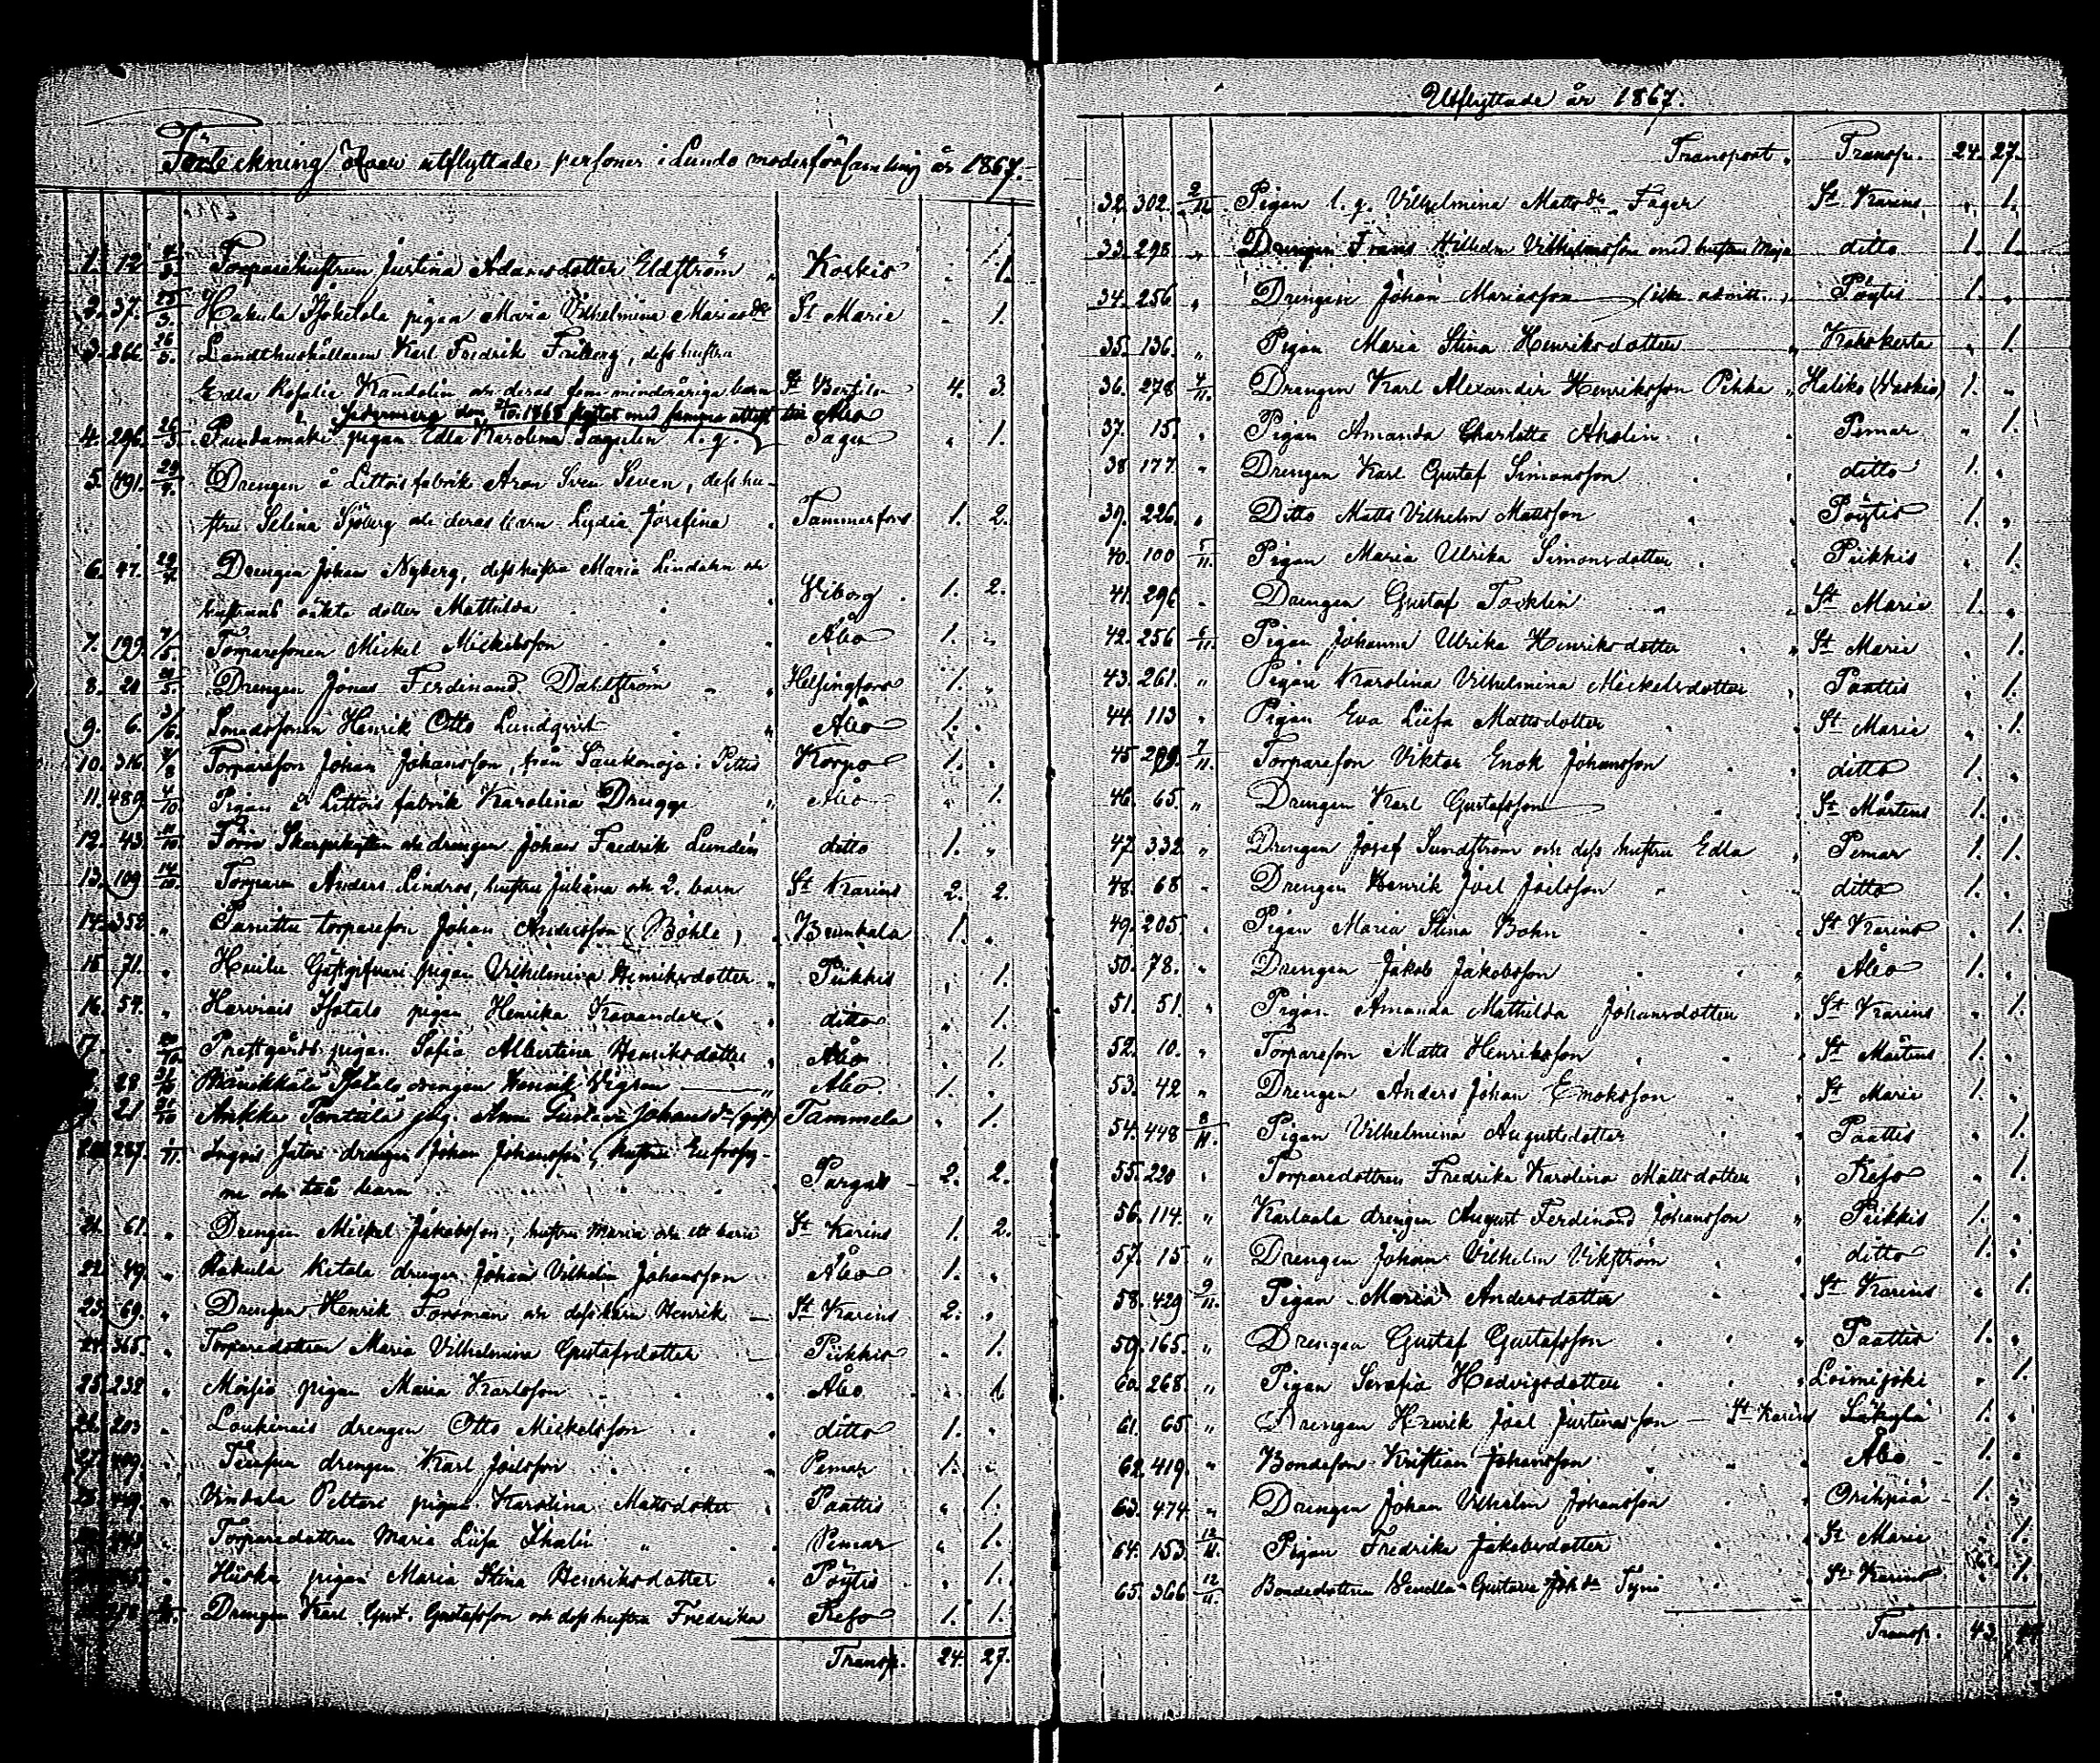 Förteckning öfver utflyttade personer i Lundo moderförsamling år 1867.
1. 12. Torparehustrun Justina Adamsdotter Edström Koskis 1.
2. 37. 25/3. Hakula Isokilola pigan Maria Vilhelmina Mariasdr St Marie 1.
3. 266. 26/3. Landthushållaren Karl Fredrik Friberg, dess hustru
Edla Rosalie Kandolin och deras fem minderåriga barn St Bertils 4. 3.
den 1868 med samma attest till Åbo
4. 296. 26/3. pigan Edla Karolina Sagulin l. g. Sagu 1.
5. 491. 29/4. Drengen å Littois fabrik Aron Sven Seven, dess hu-
stru Selina Sjöberg och deras barn Lydia Josefina Tammerfors 1. 2.
6. 47. 29/4. Drengen Johan Nyberg, dess hustru Maria Lindahn och
hustruns oäkta dotter Mathilda Viborg 1. 2.
7. 199. 7/5. Torparesonen Mickel Mickelsson Åbo 1. "
8. 20 /5. Drengen Jonas Ferdinand Dahlström Helsingfors 1. "
9. 6. 3/6. Smedssonen Henrik Otto Lundqvist Åbo 1.
10. 316. 7/8 Torpareson Johan Johansson, från Saukonoja i Pettis Korpo 1.
11. 489. 4/10 Pigan å Littois fabrik Karolina Drugge Åbo 1.
12. 43. 11/10 Förre Skarpskytten och drengen Johan Fredrik Lundén ditto 1. "
13. 109 14/10. Torparen Anders Lindros, hustru Juliana och 2. barn St Karins 2. 2.
14. 352. " torpareson Johan Andersson (Böhle) Brunkala 1. "
15 71. " Gästgifvari pigan Vilhelmina Henriksdotter Piikkis 1.
16. 54. " Harvais Isotalo pigan Henrika Kavander ditto 1.
17. 20/10. Prestgårds pigan Sofia Albertina Henriksdotter Åbo 1.
28 Isotalo drengen Henrik Vigren Åbo 1.
21 31/10 Ankka Panttila pig. Anna Gustava Johansdr (gift) Tammela 1.
287. 1/11. Johan Johansson, hustru Eufrosy-
ne och två barn Pargas 2. 2.
21. 61. " Drengen Mickel Jakobsson, hustru Maria och ett barn St Karins 1. 2.
22. 49. " Hakula Ketala drengen Johan Vilhelm Johansson Åbo 1. "
23. 69. " Drengen Henrik Forsman och dess barn Henrik St Karins 2. "
24. 365. " Torparedottren Maria Vilhelmina Gustafsdotter Piikkis 1.
25. 232 " Moisio pigan Maria Karlsson Åbo 1
26. 203 " Loukinais drengen Otto Mickelsson ditto 1. "
27. 409. drengen Karl Joelsson Pemar 1.
" Vindala Peltari pigan Karolina Mattsdotter Paattis " 1.
" Torparedottren Maria Liisa Pemar " 1.
" pigan Maria Stina Henriksdotter Pöytis 1.
Drengen Karl Gust. Gustafsson och dess hustru Fredrika Reso 1. 1.
Transp. 24. 27.
Utflyttade år 1867.
Transport. Transp. 24. 27.
32. 302. 2/11 Pigan l. g. Vilhelmina Mattsdr Fager St Karins " 1.
33. 298 " Drengen Frans Vilhelm Vilhelmsson med hustru Maja ditto 1. 1.
34. 256 " Drengen Johan Mariasson Pöytis 1. "
35. 136. " Pigan Maria Stina Henriksdotter Kakskerta " 1.
36. 278 4/11. Drengen Karl Alexander Henriksson Pikka Haliko (Vaskio) 1. "
37. 15. " Pigan Amanda Charlotta Aholin Pemar " 1.
38. 177. " Drengen Karl Gustaf Simonsson ditto 1. "
39. 226. " Ditto Matts Vilhelm Mattsson Pöytis 1. "
40. 100 5/11. Pigan Maria Ulrika Simonsdotter Piikkis 1.
41. 296 " Drengen Gustaf Tocklin St Marie 1. "
42. 256 6/11. Pigan Johanna Ulrika Henriksdotter St Marie " 1.
43. 261. " Pigan Karolina Vilhelmina Mickelsdotter Paattis " 1.
44. 113 " Pigan Eva Liisa Mattsdotter St Marie " 1.
45 7/11. Torpareson Viktor Enok Johansson ditto 1. "
46. 65. " Drengen Karl Gustafsson St Mårtens 1. "
47. 332. " Drengen Josef Sundström och dess hustru Edla Pemar 1. 1.
48. 68 " Drengen Henrik Joel Joelsson ditto 1. "
49. 205. " Pigan Maria Stina Bohn St Karins " 1.
50. 78. " Drengen Jakob Jakobsson Åbo 1. "
51. 51. " Pigan Amanda Mathilda Johansdotter St Karins " 1.
52. 10. " Torpareson Matts Henriksson St Mårtens 1. "
53. 42 " Drengen Anders Johan Enoksson St Marie 1. "
54. 448 8/11. Pigan Vilhelmina Augustsdotter Paattis " 1.
55. 220 " Torparedottren Fredrika Karolina Mattsdotter Reso " 1.
56. 114. " Karlvala drengen August Ferdinand Johansson Piikkis 1. "
57. 15 " Drengen Johan Vilhelm Vikström ditto 1. "
58. 429 9/11. Pigan Maria Andersdotter St Karins " 1.
59. 165. " Drengen Gustaf Gustafsson Paattis 1. "
60. 268. " Pigan Serafia Hedvigsdotter Loimijoki " 1.
61. 65 " Drengen Henrik Joel Justinasson St Karins Säkylä 1. "
62. 419. " Bondeson Kristian Johansson Åbo 1. "
63. 474 " Drengen Johan Vilhelm Johansson Orihpää 1. "
64. 153. 12/11. Pigan Fredrika Jakobsdotter St Marie " 1.
65. 366 12/11. Bondedottren Vendla Gustava Johdr Tyni St Karins " 1.
Transp. 43.